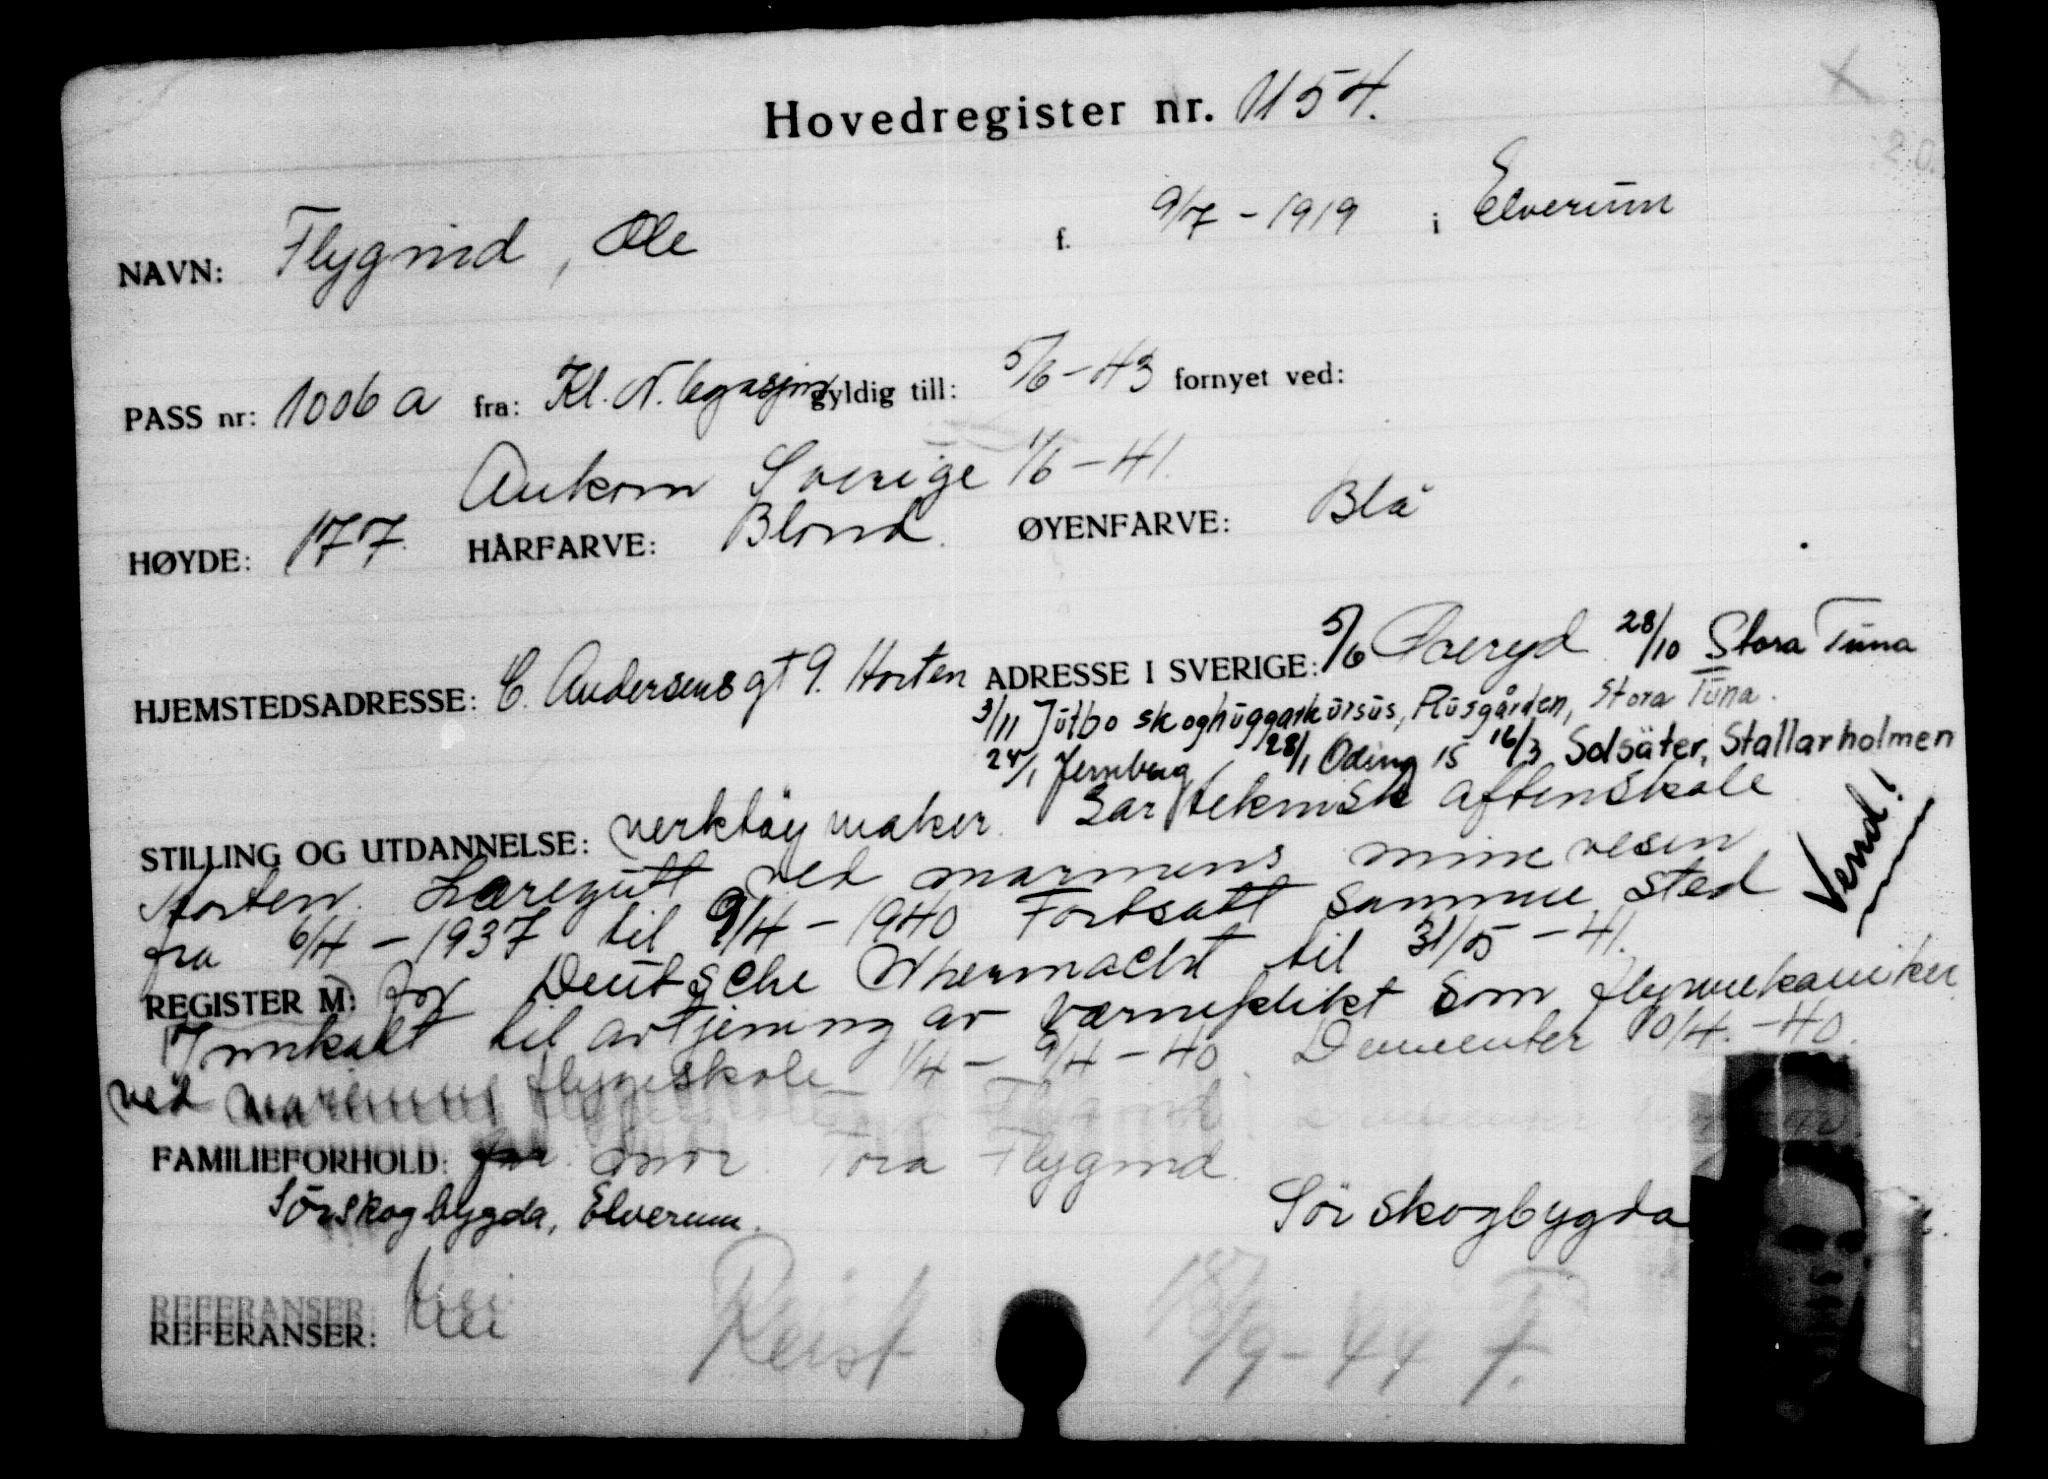 Hovedregister nr. 1154.
NAVN: Flygind, Ole f. 9/7 - 1919 i Elverum
PASS nr: 1006 a fra: Kl. N. legasjon gyldig till: 5/6 - 43 fornyet ved:
Ankom Sverige 1/6 - 41.
HØYDE: 177. HÅRFARVE: Blond. ØYENFARVE: Blå
HJEMSTEDSADRESSE: C. Andersens gt 9. Horten ADRESSE I SVERIGE: 5/6 Öreryd 28/10 Stora Tuna
3/11 Jutbo skoghuggarkursus, Rusgården, Stora Tuna.
24/1 Jernberg, 28/1 Oding 15 16/3 Solsäter, Stallarholmen
STILLING OG UTDANNELSE: verktöymaker. 3 år teknisk aftenskole
Horten. Læregutt ved marinens minevesen
fra 6/4 - 1937 til 9/4 - 1940 Fortsatt samme sted
REGISTER M: for Deutsche Whermacht til 31/5 - 41.
Innkalt til avtjening av værneplikt som flymekaniker
ved marinens flyveskole 1/4 - 9/4 - 40. Dementer 10/4. - 40.
Vend!
FAMILIEFORHOLD: mor Tora Flygind.
Sörskogbygda, Elverum. Sörskogbygda
REFERANSER:
REFERANSER: Nei
Reist 18/9 - 44 F.